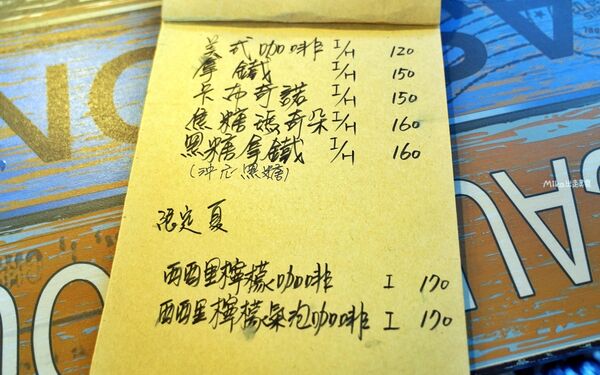 美式咖啡 I/H 120
拿鐵 I/H 150
卡布奇諾 I/H 150
焦糖瑪奇朵 I/H 160
黑糖拿鐵 I/H 160
(沖繩黑糖)
限定夏
西西里檸檬咖啡 I 170
西西里檸檬氣泡咖啡 I 170